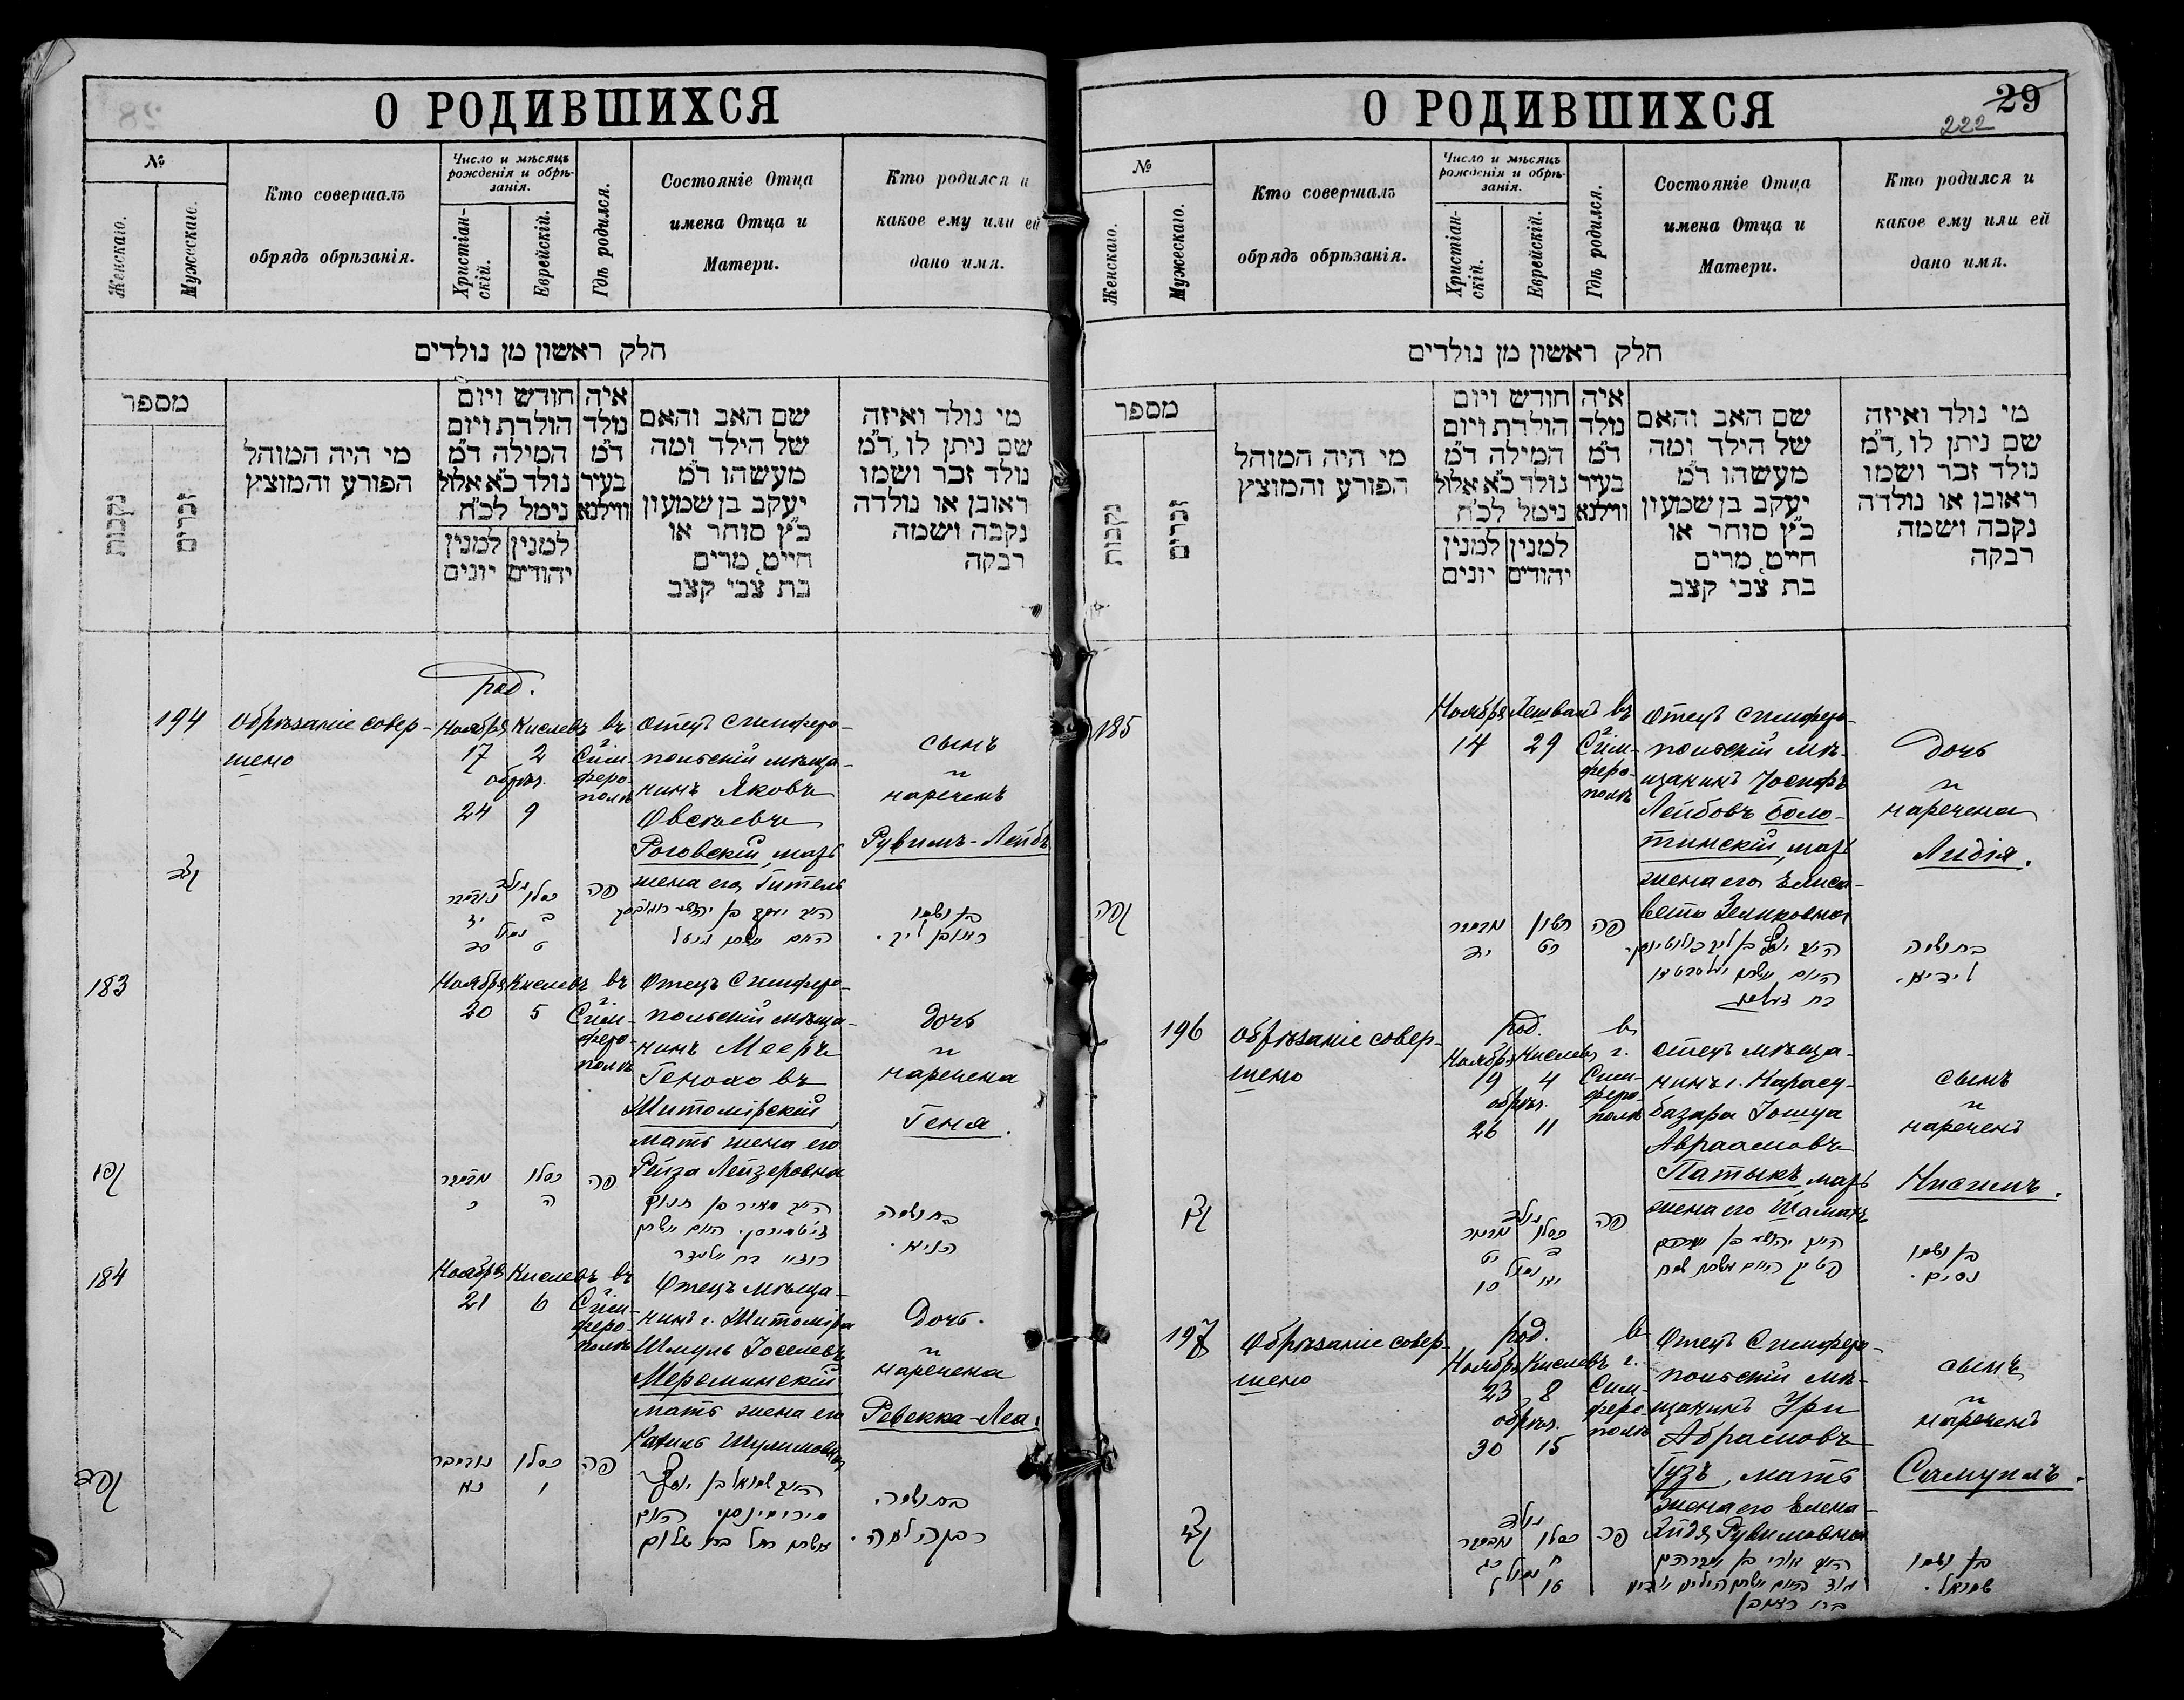 О РОДИВШИХСЯ
№
Женскаго.
Мужескаго.
Кто совершалъ
обрядъ обрѣзанія.
Число и мѣсяцъ
рожденія и обрѣ-
занія.
Христіан-
скій.
Еврейскій.
Гдѣ родился.
Состояніе Отца
имена Отца и
Матери.
Кто родился и
какое ему или ей
дано имя.
חלק ראשון מן נולדים
מספר
נקבות
זכרים
מי היה המוהל
הפורע והמוצץ
חודש ויום
הולדת ויום
המילה ד״מ
נולד כ״א אלול
נימל לכ״ח
למנין יהודים
למנין יונים
איה
נולד
ד״מ
בעיר
ווילנא
שם האב והאם
של הילד ומה
מעשהו ד״מ
יעקב בן שמעון
כ״ץ סוחר או
חייט מרים
בת צבי קצב
מי נולד ואיזה
שם ניתן לו, ד״מ
נולד זכר ושמו
ראובן או נולדה
נקבה ושמה
רבקה
194
обрѣзаніе совер-
шено
род.
Ноября Кислевъ
17 2
обрѣз.
24 9
въ
г.
Сим-
феро-
полѣ
Отецъ симферо-
польскій мѣща-
нинъ Яковъ
Овсѣевъ
Роговскій, мать
жена его Гитель
сынъ
и
нареченъ
Рувимъ-Лейбъ
נולד
כסלו
ב
נימול
ט
פה
בן ושמו
ראובן ליב.
183
Ноября Кислевъ
20 5
въ
г.
Сим-
феро-
полѣ
Отецъ Симферо-
польскій мѣща-
нинъ Мееръ
Геноховъ
Житомірскій,
мать жена его
Рейза Лейзеровна
дочь
и
наречена
Геня.
כסלו
ה
כ
פה
בת ושמה
העניא.
184
Ноября Кислевъ
21 6
въ
г.
Сим-
феро-
полѣ
Отецъ мѣща-
нинъ г. Житоміра
Шмуль Іоселевъ
Мероминскій
мать жена его
Рахиль Шулимовна
Дочь.
и
наречена
Ревекка-Леа.
נוועמבר כסלו
כא ו
פה
היו שמואל בן יוסף
אשתו רחל בת שלום
בת ושמה
רבקה לאה.
О РОДИВШИХСЯ
29
222
№
Женскаго.
Мужескаго.
Кто совершалъ
обрядъ обрѣзанія.
Число и мѣсяцъ
рожденія и обрѣ-
занія.
Христіан-
скій.
Еврейскій.
Гдѣ родился.
Состояніе Отца
имена Отца и
Матери.
Кто родился и
какое ему или ей
дано имя.
חלק ראשון מן נולדים
מספר
נקבות
זכרים
מי היה המוהל
הפורע והמוצץ
חודש ויום
הולדת ויום
המילה ד״מ
נולד כ״א אלול
נימל לכ״ח
למנין יהודים
למנין יונים
איה
נולד
ד״מ
בעיר
ווילנא
שם האב והאם
של הילד ומה
מעשהו ד״מ
יעקב בן שמעון
כ״ץ סוחר או
חייט מרים
בת צבי קצב
מי נולד ואיזה
שם ניתן לו, ד״מ
נולד זכר ושמו
ראובן או נולדה
נקבה ושמה
רבקה
185
Ноября Хешванъ
14 29
въ
г.
Сим-
феро-
полѣ
Отецъ симферо-
польскій мѣ-
щанинъ Іосифъ
Лейбовъ Боло-
тинскій, мать
жена его Елиса-
вета Зеликовна
Дочь
и
наречена
Лидія.
חשון
פה
בת ושמה
לידיא.
196
обрѣзаніе совер-
шено
род.
Ноября Кислевъ
19 4
обрѣз.
26 11
въ
г.
Сим-
феро-
полѣ
Отецъ мѣща-
нинъ г. Карасу-
базара Іошуа
Авраамовъ
Патыкъ, мать
жена его
сынъ
и
нареченъ
Нисимъ.
נולד
כסלו
נימול
פה
בן ושמו
נסים.
197
Обрѣзаніе совер-
шено
род.
Ноября Кислевъ
23 8
обрѣз.
30 15
въ
г.
Сим-
феро-
полѣ
Отецъ Симферо-
польскій мѣ-
щанинъ Ури
Абрамовъ
Гузъ, мать
жена его Елена-
Рувимовна
сынъ
и
нареченъ
Самуилъ.
נולד
כסלו
ח
נימול
פה
בן ושמו
שמואל.